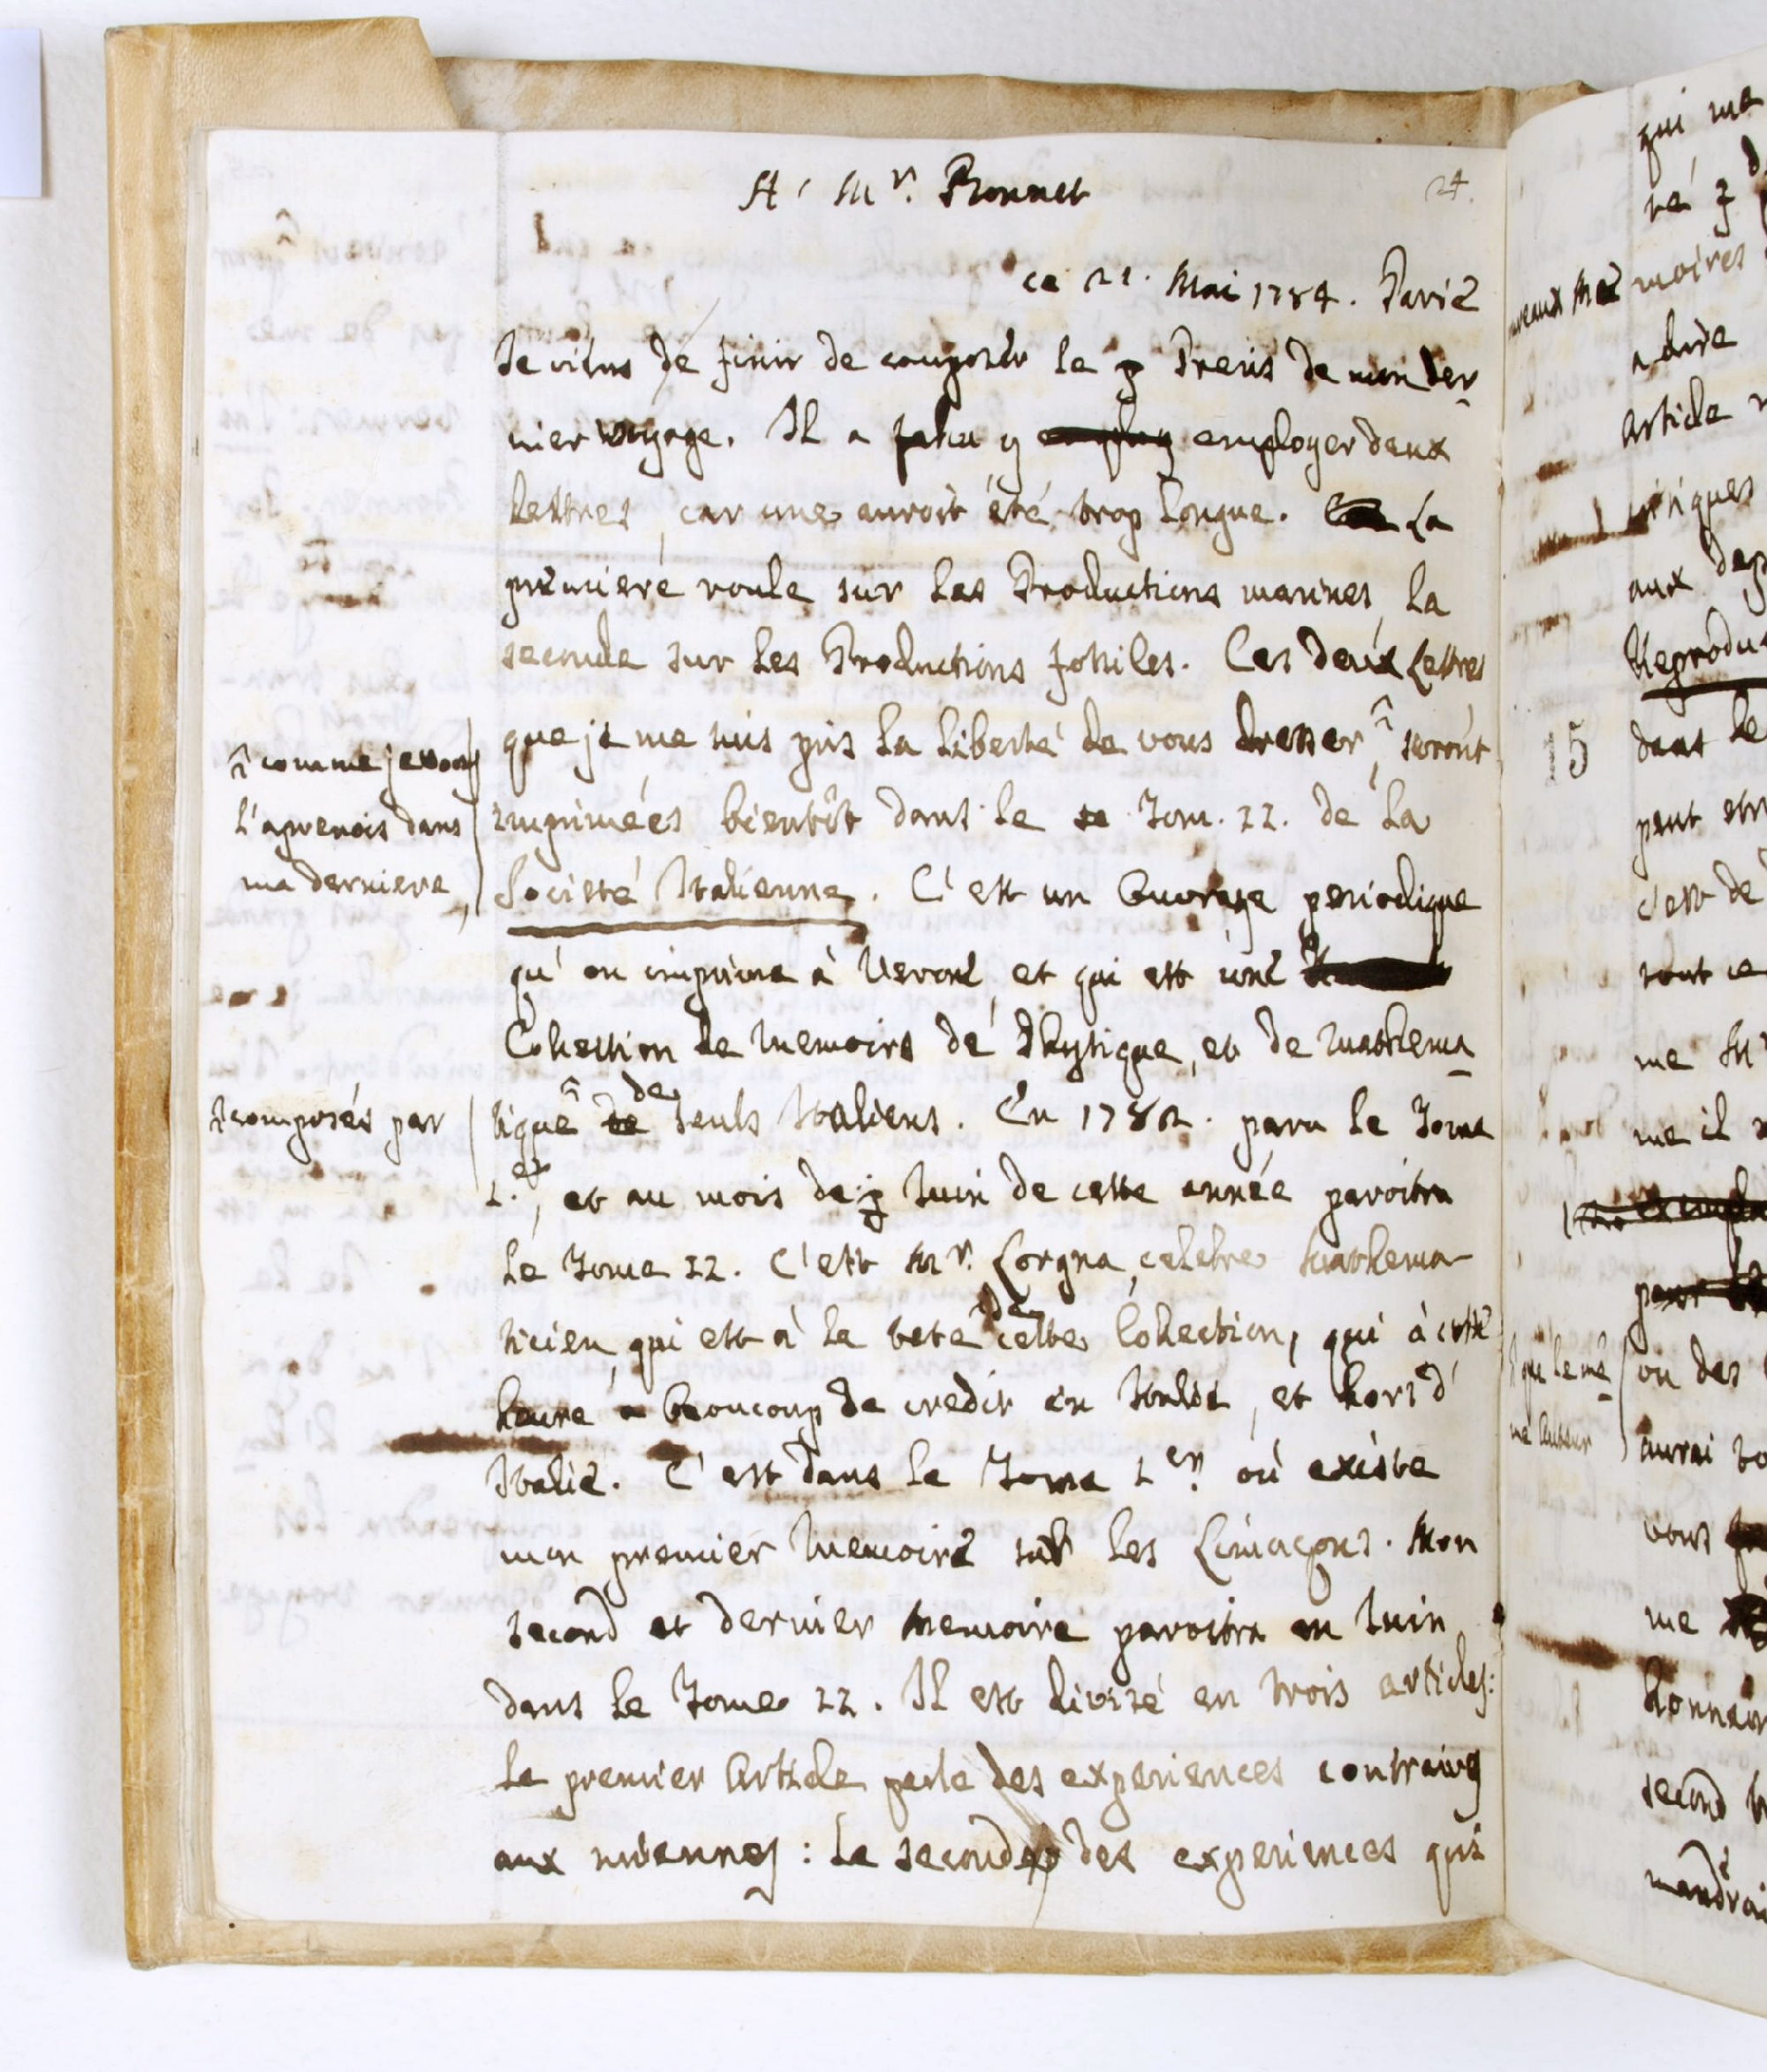 A' Mr. Bonnet
24.
ce 21. Mai 1784. Pavie
Je viens de finir de composer le Precis de mon der-
nier voyage. Il a falu y employer deux
Lettres, car une auroit été trop longue. La
premiere roule sur les Productions marines, la
seconde sur les Productions fossiles. Ces deux Lettres
que je me suis pris la liberté de vous dresser, seront
comme je vous
l'aprenois dans
ma derniere,
imprimées bientôt dans le Tom. II. de la
Societé Italienne. C'est un Ouvrage periodique
qu'on imprime à Verone, et qui est une
Collection de Memoires de Physique, et de Mathema-
tique de seuls Italiens. En 1782. paru le Tome
composés par
I.er, et au mois de Juin de cette année paroitra
le Tome II. C'est Mr. Lorgna, celebre Mathema-
ticien, qui est à la tete de cette Collection, qui à cette
heure a beaucoup de credit en Italie, et hors d'
Italie. C'est dans le Tome I.er où existe
mon premier Memoire sur les Limaçons. Mon
second et dernier Memoire paroitra en Juin
dans le Tome II. Il est divisé en trois articles:
le premier Article parle des experiences contraires
aux miennes: le second des experiences qui
qui me
moires
Article
aux
Reprodu
15
dans le
peut etr
c'est de
tout ce
me Mr
me il
ou des
que le me-
me Auteur
aurai
vous
me
honneur
second
mandrai